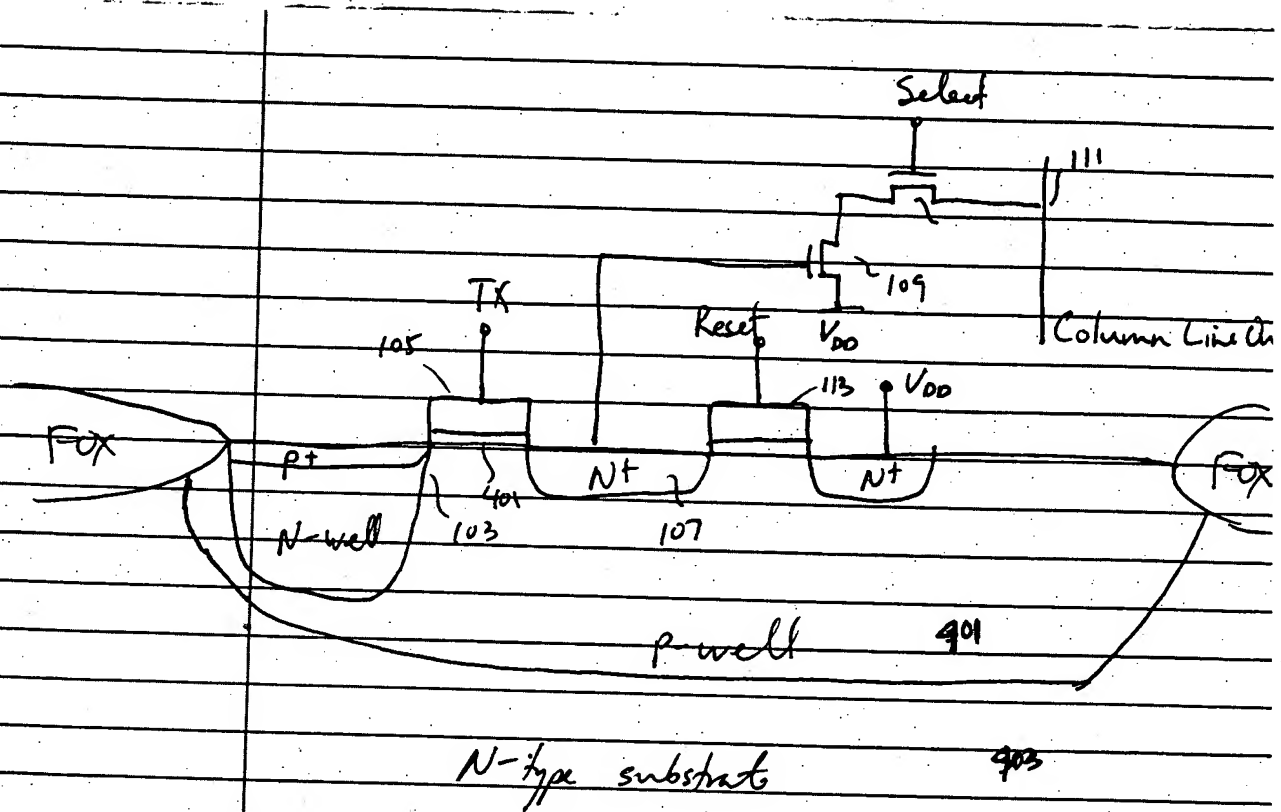 Select
111
109
TX
Reset
VDD
Column Line
105
113
VDD
FOX
P+
N+
N+
FOX
401
103
107
N-well
P-well
401
N-type substrate
403